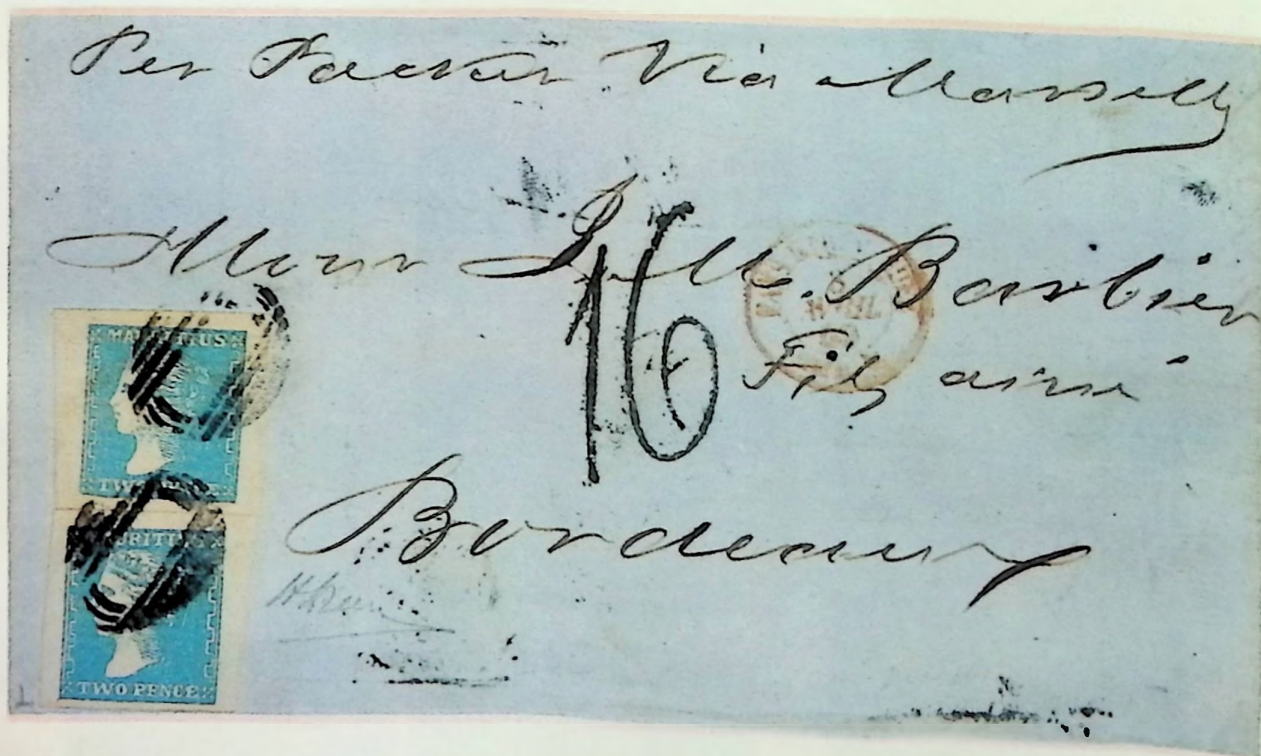 Per Packet Via Marseille
Monr J. M. Barbier
16
Fils ainé
AVRIL
Bordeaux
MAURITIUS
TWO PENCE
MAURITIUS
TWO PENCE